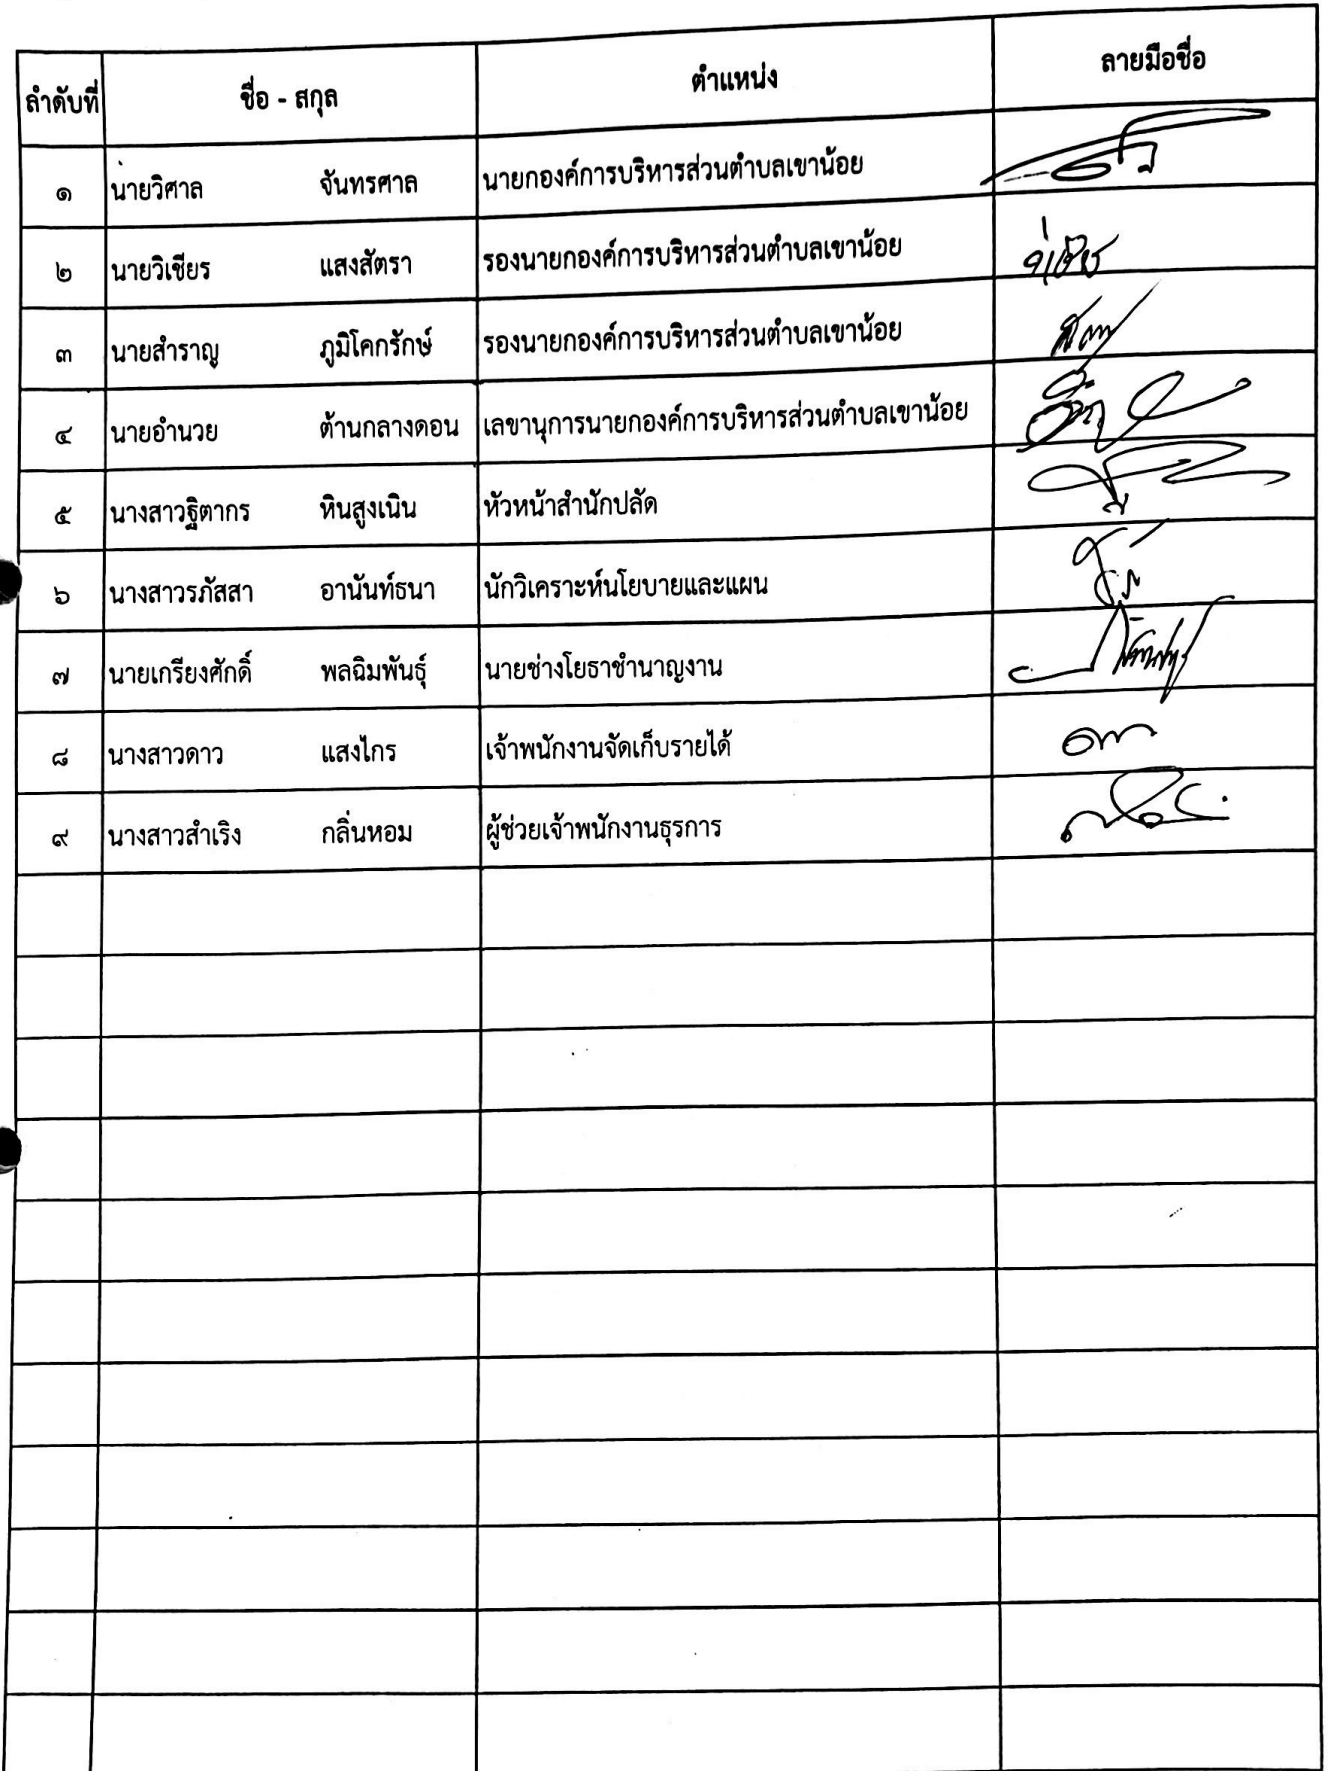 ลำดับที่ ชื่อ - สกุล ตำแหน่ง ลายมือชื่อ
๑ นายวิศาล จันทรศาล นายกองค์การบริหารส่วนตำบลเขาน้อย
๒ นายวิเชียร แสงสัตรา รองนายกองค์การบริหารส่วนตำบลเขาน้อย
๓ นายสำราญ ภูมิโคกรักษ์ รองนายกองค์การบริหารส่วนตำบลเขาน้อย
๔ นายอำนวย ต้านกลางดอน เลขานุการนายกองค์การบริหารส่วนตำบลเขาน้อย
๕ นางสาวฐิตากร หินสูงเนิน หัวหน้าสำนักปลัด
๖ นางสาวรภัสสา อานันท์ธนา นักวิเคราะห์นโยบายและแผน
๗ นายเกรียงศักดิ์ พลฉิมพันธุ์ นายช่างโยธาชำนาญงาน
๘ นางสาวดาว แสงไกร เจ้าพนักงานจัดเก็บรายได้
๙ นางสาวสำเริง กลิ่นหอม ผู้ช่วยเจ้าพนักงานธุรการ